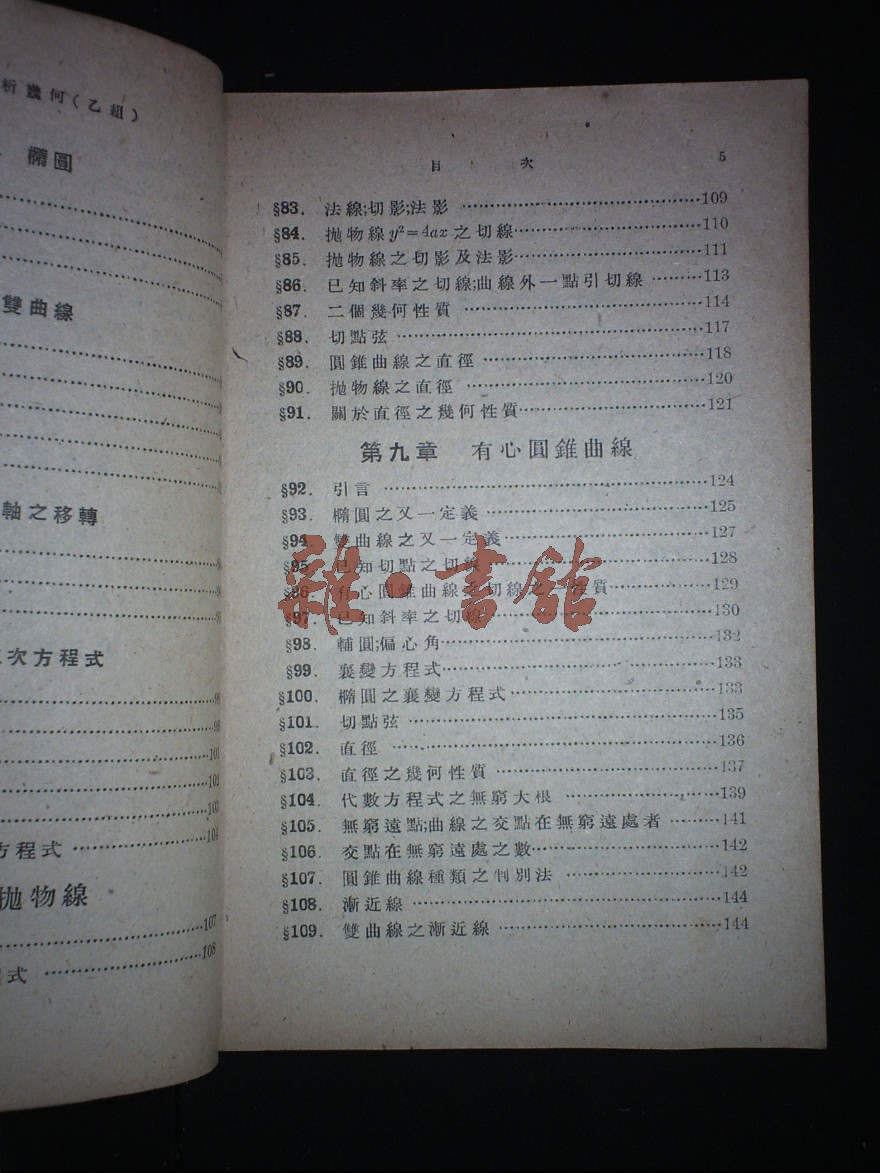 析幾何(乙組)
橢圓
雙曲線
軸之移轉
次方程式
98
98
101
102
103
方程式 104
拋物線
107
式 108
目次 5
§83. 法線;切影;法影 109
§84. 拋物線 y²=4ax 之切線 110
§85. 拋物線之切影及法影 111
§86. 已知斜率之切線;曲線外一點引切線 113
§87. 二個幾何性質 114
§88. 切點弦 117
§89. 圓錐曲線之直徑 118
§90. 拋物線之直徑 120
§91. 關於直徑之幾何性質 121
第九章 有心圓錐曲線
§92. 引言 124
§93. 橢圓之又一定義 125
§94. 雙曲線之又一定義 127
§95. 已知切點之切線 128
§96. 有心圓錐曲線之切線之 性質 129
§97. 已知斜率之切線 130
§98. 輔圓;偏心角 132
§99. 襄變方程式 133
§100. 橢圓之襄變方程式 133
§101. 切點弦 135
§102. 直徑 136
§103. 直徑之幾何性質 137
§104. 代數方程式之無窮大根 139
§105. 無窮遠點;曲線之交點在無窮遠處者 141
§106. 交點在無窮遠處之數 142
§107. 圓錐曲線種類之判別法 142
§108. 漸近線 144
§109. 雙曲線之漸近線 144
雜·書館